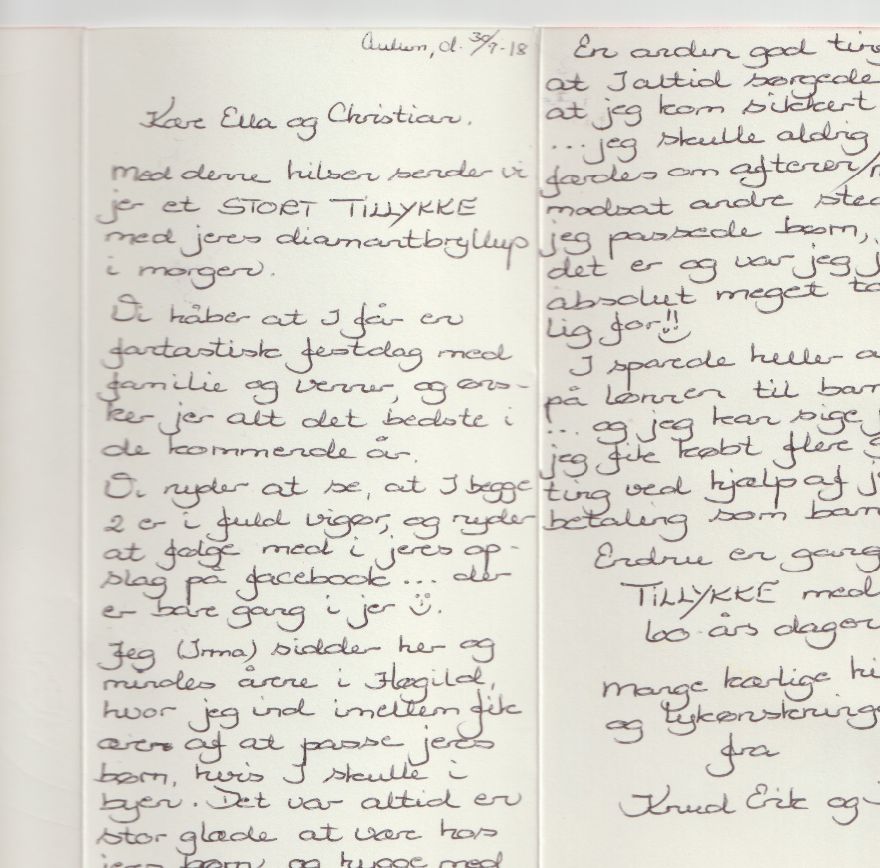 Aulum, d. 30/9-18
Kære Ella og Christian.
Med denne hilsen sender vi
jer et STORT TILLYKKE
med jeres diamantbryllup
i morgen.
Vi håber at I får en
fantastisk festdag med
familie og venner, og øns-
ker jer alt det bedste i
de kommende år.
Vi nyder at se, at I begge
2 er i fuld vigør, og nyder
at følge med i jeres op-
slag på facebook ... der
er bare gang i jer
Jeg (Irma) sidder her og
mindes årene i Høgild,
hvor jeg ind imellem fik
æren af at passe jeres
børn, hvis I skulle i
byen. Det var altid en
stor glæde at være hos
jeres børn, og hygge med
En anden god ting
at I altid sørgede
at jeg kom sikkert
... jeg skulle aldrig
færdes om aftenen/n
modsat andre sted
jeg passede børn,
det er og var jeg j
absolut meget ta
lig for!!
I sparede heller
på lønnen til barn
... og jeg kan sige
jeg fik købt flere
ting ved hjælp af j
betaling som barn
Endnu en gang
TILLYKKE med
60 års dagen
Mange kærlige hi
og lykønskninge
fra
Knud Erik og